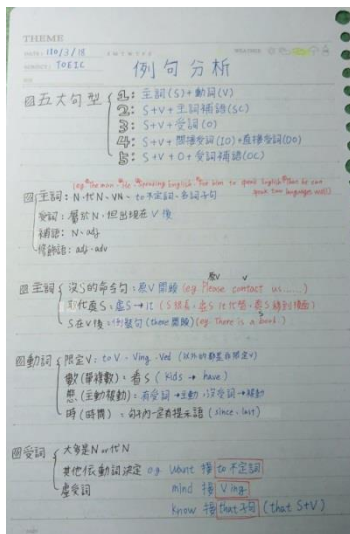 THEME
DATE: 110/3/18 S M T W T F S WEATHER
SUBJECT: TOEIC
例句分析
五大句型 1: 主詞(S)+動詞(V)
2: S+V+主詞補語(SC)
3: S+V+受詞(O)
4: S+V+間接受詞(IO)+直接受詞(DO)
5: S+V+O+受詞補語(OC)
(eg. The man、He、Speaking English、For him to speak English、That he can
speak two languages well)
主詞: N、代N、VN、to不定詞、名詞子句
受詞: 屬於N,但出現在V後
補語: N、adj
修飾語: adj、adv
原V V
主詞 沒S的命令句: 原V開頭 (eg. Please contact us ......)
代S: 虛S→it (S很長,虛S it代替,真S移到後面)
S
S在V後: 倒裝句 (there開頭) (eg. There is a book.)
動詞 限定V: to V、Ving、Ved (以外的都是限定V)
數(單複數): 看S (kids → have)
態(主動被動): 有受詞→主動,沒受詞→被動
時(時間): 句子內一定有提示語 (since、last)
受詞 大多是N or 代N
其他依動詞決定 eg. Want 接 to不定詞
虛受詞 mind 接 Ving
know 接 that子句 (that S+V)